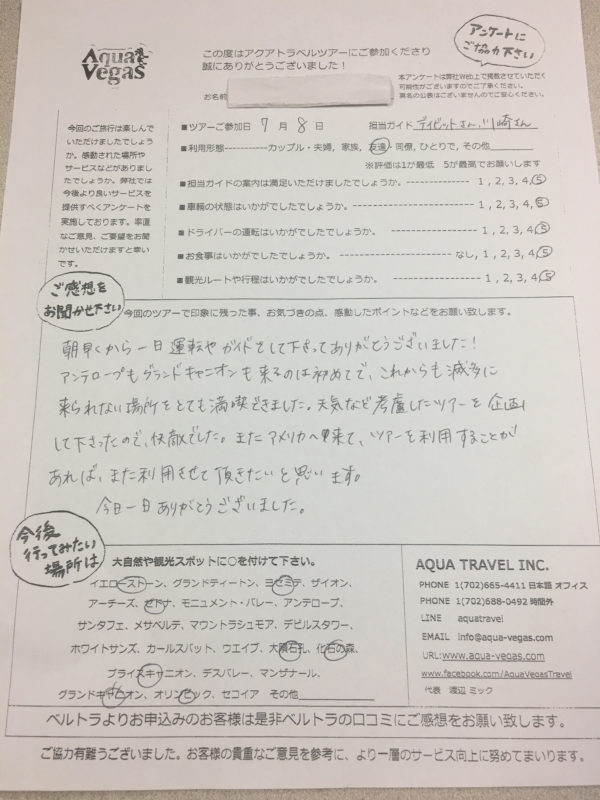 Aqua Vegas
この度はアクアトラベルツアーにご参加くださり
誠にありがとうございました！
アンケートに
ご協力下さい
本アンケートは弊社Web上で掲載させていただく
可能性がございますのでご了承ください。
実名の公表はございませんのでご安心ください。
お名前
今回のご旅行は楽しんで
いただけましたでしょう
か。感動された場所や
サービスなどがありまし
たでしょうか。弊社では
今後より良いサービスを
提供すべくアンケートを
実施しております。率直
なご意見、ご要望をお聞
かせいただけますと幸い
です。
■ツアーご参加日 7 月 8 日 担当ガイド デイビットさん、川崎さん
■利用形態-----------カップル・夫婦, 家族, 友達・同僚, ひとりで, その他
※評価は1が最低 5が最高でお願いします
■担当ガイドの案内は満足いただけましたでしょうか。 1 , 2, 3, 4, 5
■車輌の状態はいかがでしたでしょうか。 1 , 2, 3, 4, 5
■ドライバーの運転はいかがでしたでしょうか。 1 , 2, 3, 4, 5
■お食事はいかがでしたでしょうか。 なし, 1 , 2, 3, 4, 5
■観光ルートや行程はいかがでしたでしょうか。 1 , 2, 3, 4, 5
ご感想を
お聞かせ下さい
今回のツアーで印象に残った事、お気づきの点、感動したポイントなどをお願い致します。
朝早くから一日運転やガイドをして下さってありがとうございました！
アンテロープもグランドキャニオンも来るのは初めてで、これからも滅多に
来られない場所をとても満喫できました。天気など考慮したツアーを企画
して下さったので、快敵でした。またアメリカへ来て、ツアーを利用することが
あれば、また利用させて頂きたいと思います。
今日一日ありがとうございました。
今後
行ってみたい
場所は
大自然や観光スポットに○を付けて下さい。
イエローストーン、グランドティートン、ヨセミテ、ザイオン、
アーチーズ、セドナ、モニュメント・バレー、アンテロープ、
サンタフェ、メサベルデ、マウントラシュモア、デビルスタワー、
ホワイトサンズ、カールスバット、ウエイブ、大隕石孔、化石の森、
ブライスキャニオン、デスバレー、マンザナール、
グランドキャニオン、オリンピック、セコイア その他
AQUA TRAVEL INC.
PHONE 1(702)665-4411 日本語 オフィス
PHONE 1(702)688-0492 時間外
LINE aquatravel
EMAIL info@aqua-vegas.com
URL:www.aqua-vegas.com
www.facebook.com/AquaVegasTravel
代表 渡辺 ミック
ベルトラよりお申込みのお客様は是非ベルトラの口コミにご感想をお願い致します。
ご協力有難うございました。お客様の貴重なご意見を参考に、より一層のサービス向上に努めてまいります。